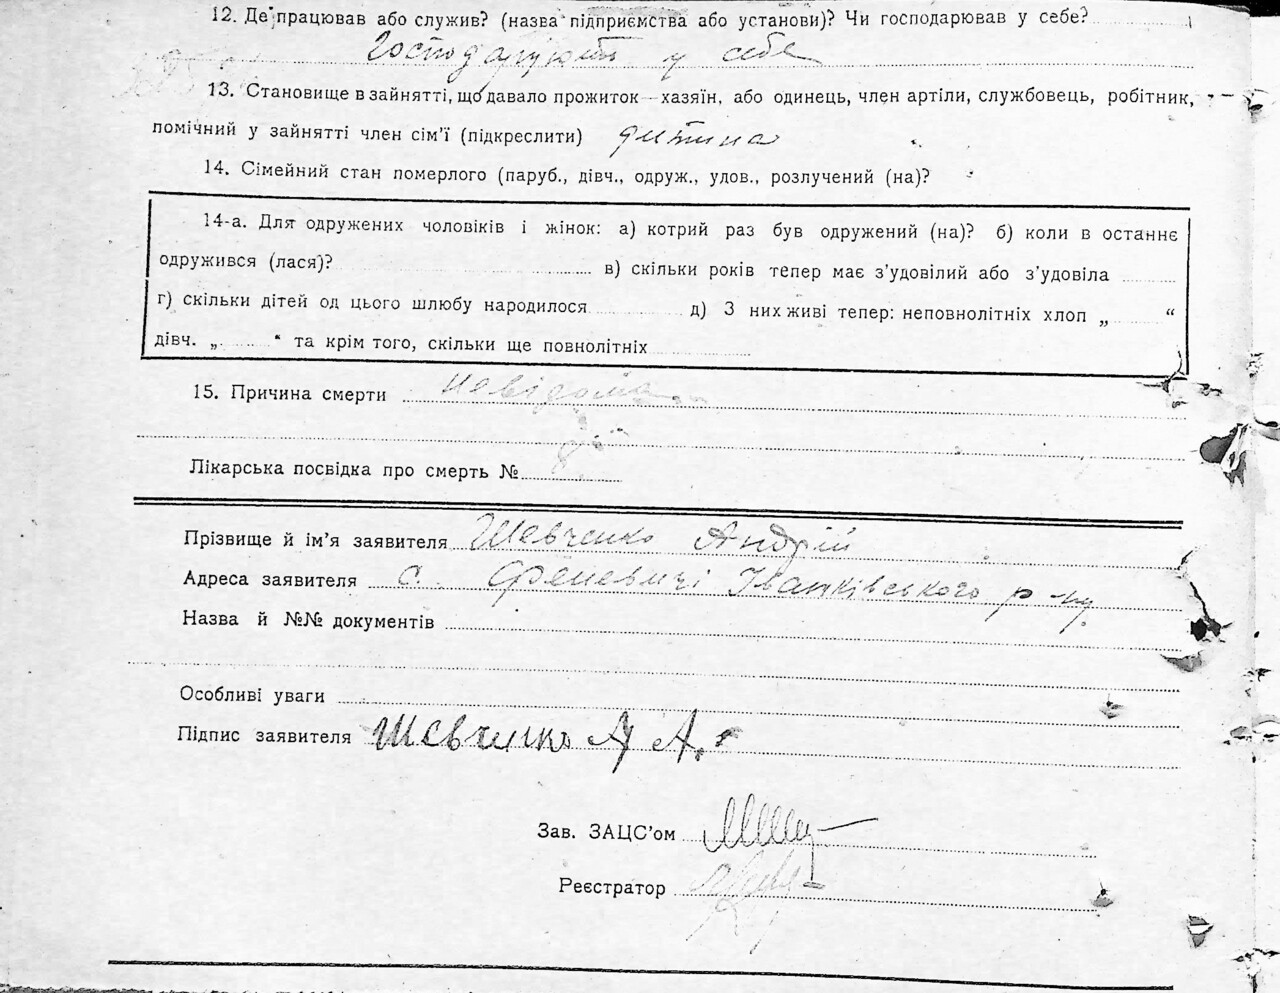 12. Де працював або служив? (назва підприємства або установи)? Чи господарював у себе?
Господарюють у себе
13. Становище в зайнятті, що давало прожиток—хазяїн, або одинець, член артіли, службовець, робітник,
помічний у зайнятті член сім’ї (підкреслити) дитина
14. Сімейний стан померлого (паруб., дівч., одруж., удов., розлучений (на)?
14-а. Для одружених чоловіків і жінок: а) котрий раз був одружений (на)? б) коли в останнє
одружився (лася)? в) скільки років тепер має з’удовілий або з’удовіла
г) скільки дітей од цього шлюбу народилося д) З них живі тепер: неповнолітніх хлоп „ “
дівч. „ “ та крім того, скільки ще повнолітніх
15. Причина смерти невідома
Лікарська посвідка про смерть №
Прізвище й ім’я заявителя Шевченко Андрій
Адреса заявителя с. Феневичі Іванківського р-ну
Назва й №№ документів
Особливі уваги
Підпис заявителя Шевченко А А.
Зав. ЗАЦС’ом
Реєстратор